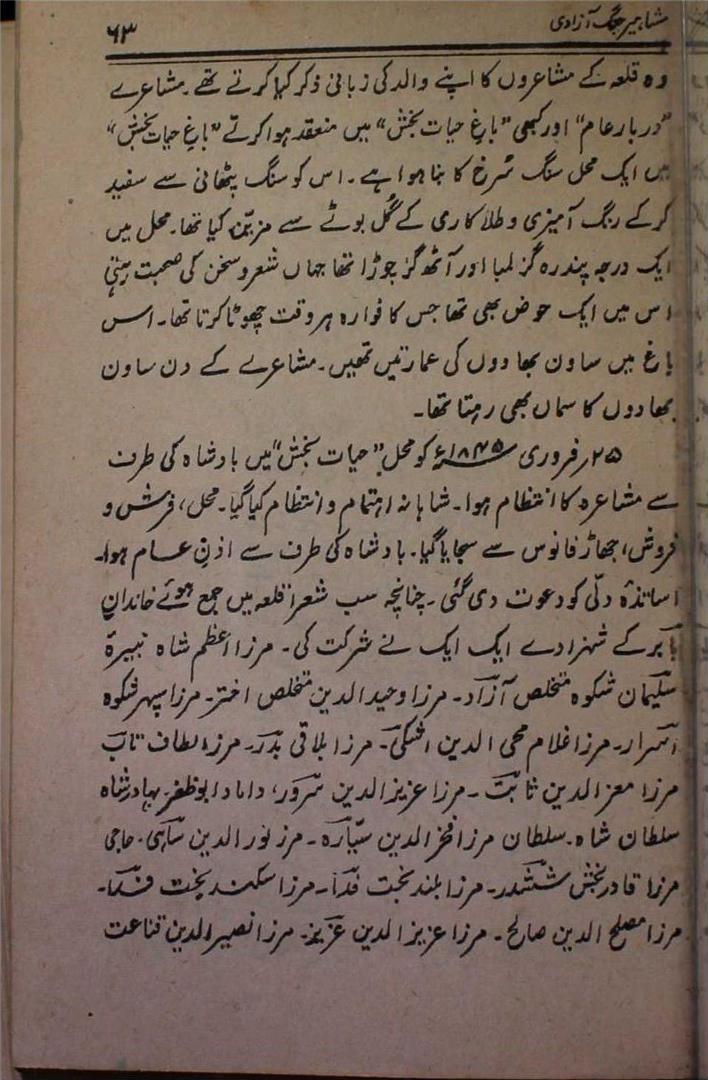 مشاہیر جنگ آزادی
۶۳
وہ قلعہ کے مشاعروں کا اپنے والد کی زبانی ذکر کیا کرتے تھے۔ مشاعرے
"دربار عام" اور کبھی "باغ حیات بخش" میں منعقد ہوا کرتے "باغ حیات بخش"
میں ایک محل سنگ سُرخ کا بنا ہوا ہے۔ اس کو سنگ پٹھانی سے سفید
کر کے رنگ آمیزی و طلا کاری کے گُل بوٹے سے مزیّن کیا تھا۔ محل میں
ایک درجہ پندرہ گز لمبا اور آٹھ گز چوڑا تھا جہاں شعر و سخن کی صحبت رہتی
اس میں ایک حوض بھی تھا جس کا فوارہ ہر وقت چھوٹا کرتا تھا۔ اس
باغ میں ساون بھادوں کی عمارتیں تھیں۔ مشاعرے کے دن ساون
بھادوں کا سماں بھی رہتا تھا۔
۲۵ر فروری ۱۸۴۵ء کو محل "حیات بخش" میں بادشاہ کی طرف
سے مشاعرہ کا انتظام ہوا۔ شاہانہ اہتمام و انتظام کیا گیا۔ محل، فرش و
فروش، جھاڑ فانوس سے سجایا گیا۔ بادشاہ کی طرف سے اذنِ عام ہوا۔
اساتذہ دلّی کو دعوت دی گئی۔ چنانچہ سب شعرا قلعہ میں جمع ہوئے خاندانِ
بابر کے شہزادے ایک ایک نے شرکت کی۔ مرزا اعظم شاہ نبیرۂ
سلیمان شکوہ متخلص آزاد۔ مرزا وحید الدین متخلص اختر۔ مرزا سپہر شکوہ
اسرار۔ مرزا غلام محی الدین اشکی۔ مرزا بلاقی بدر۔ مرزا الطاف تاب
مرزا معز الدین ثابت۔ مرزا عزیز الدین سرور، داماد ابوظفر بہادر شاہ
سلطان شاہ۔ سلطان مرزا فخر الدین سیارہ۔ مرزا نور الدین ساہی۔ حاجی
مرزا قادر بخش ششدر۔ مرزا بلند بخت فدا۔ مرزا سکندر بخت فنا۔
مرزا مصلح الدین صالح۔ مرزا عزیز الدین عزیز۔ مرزا نصیر الدین قناعت